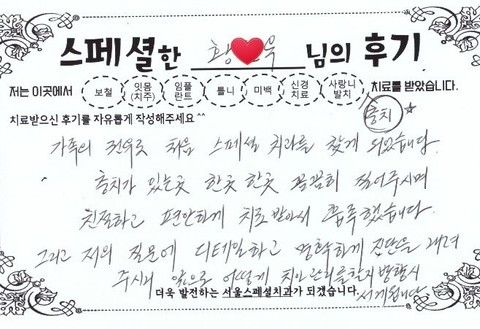 스페셜한 황 욱 님의 후기
저는 이곳에서 보철 잇몸(치주) 임플란트 틀니 미백 신경치료 사랑니발치 치료를 받았습니다.
충치
치료받으신 후기를 자유롭게 작성해주세요^^
가족의 처음 스페셜 치과를 찾게 되었습니다.
충치가 있는곳 한곳 한곳 꼼꼼히 찍어주시며
친절하고 편안하게 치료 받아서 훌륭했습니다.
그리고 저의 질문에 디테일하고 명확하게 진단을 내려
주시어 앞으로 어떻게 치아관리를할지 방향이
더욱 발전하는 서울스페셜치과가 되겠습니다.